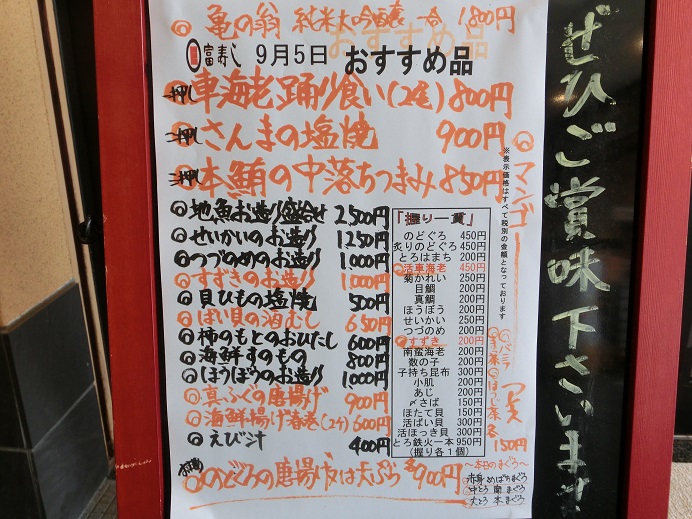 ◎亀の翁 純米大吟醸 一合 1,800円
富寿し 9月5日 おすすめ品
一押し 車海老踊り食い(2尾) 800円
二押し さんまの塩焼 900円
三押し 本鮪の中落ちつまみ 850円
◎地魚お造り盛合せ 2500円
◎せいかいのお造り 1250円
◎つづのめのお造り 1000円
◎すずきのお造り 1000円
◎貝ひもの塩焼 500円
◎ばい貝の酒むし 650円
◎柿のもとのおひたし 600円
◎海鮮すのもの 800円
◎ほうぼうのお造り 1000円
◎真ふぐの唐揚げ 900円
◎海鮮揚げ春巻(2ケ) 600円
◎えび汁 400円
◎のどぐろの唐揚げ又は天ぷら 900円
「握り一貫」
のどぐろ 450円
炙りのどぐろ 450円
とろはまち 200円
◎活車海老 450円
菊かれい 250円
目鯛 200円
真鯛 200円
ほうぼう 200円
せいかい 250円
つづのめ 200円
◎すずき 200円
南蛮海老 200円
数の子 200円
子持ち昆布 300円
小肌 200円
あじ 200円
〆さば 150円
ほたて貝 200円
活ばい貝 300円
活ほっき貝 300円
とろ鉄火一本 950円
(握り各1個)
※表示価格はすべて税別の金額となっております
◎マンゴー
◎バニラ
◎ほうじ茶
アイス
各150円
~本日のまぐろ~
赤身 めばちまぐろ
中とろ 南まぐろ
大とろ 本まぐろ
ぜひご賞味下さいませ